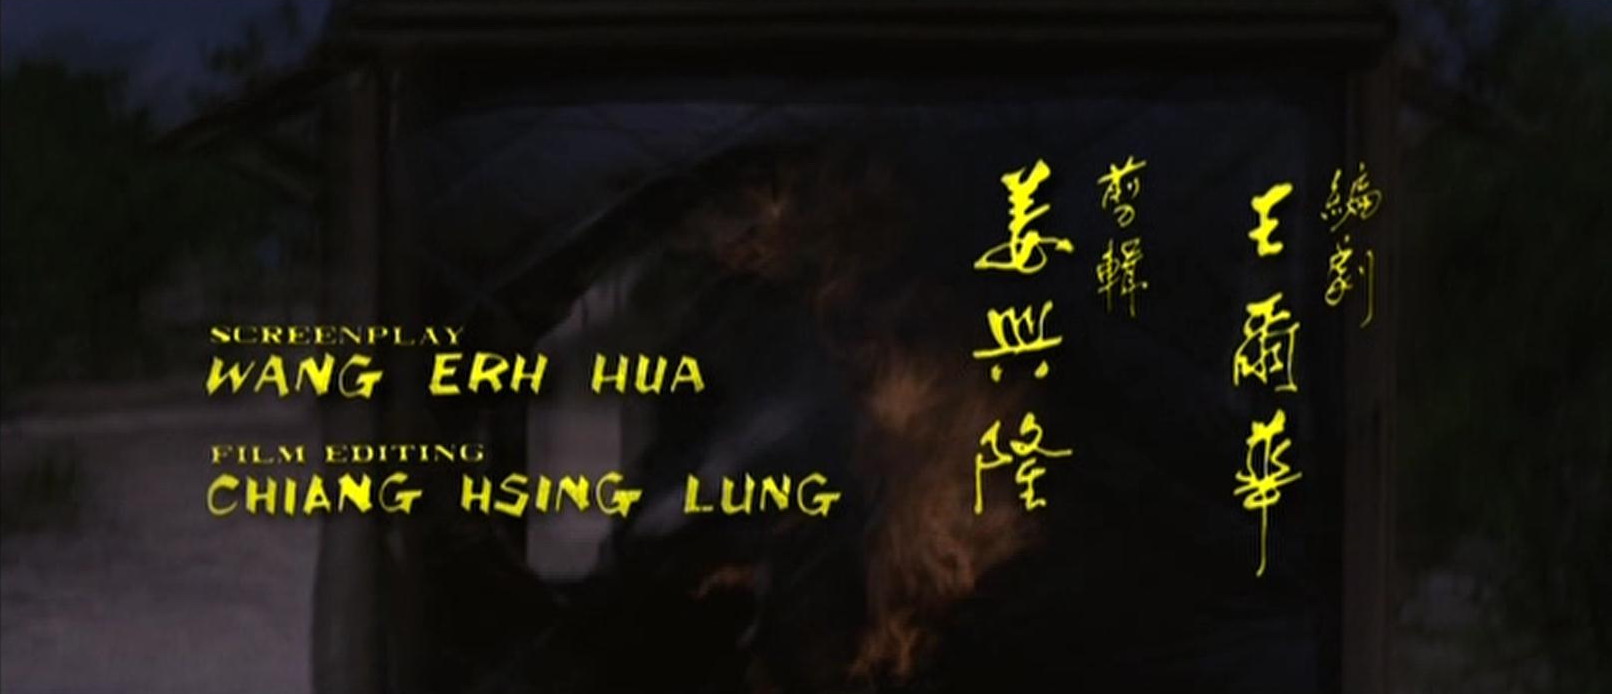 SCREENPLAY
WANG ERH HUA
FILM EDITING
CHIANG HSING LUNG
編劇
王爾華
剪輯
姜興隆